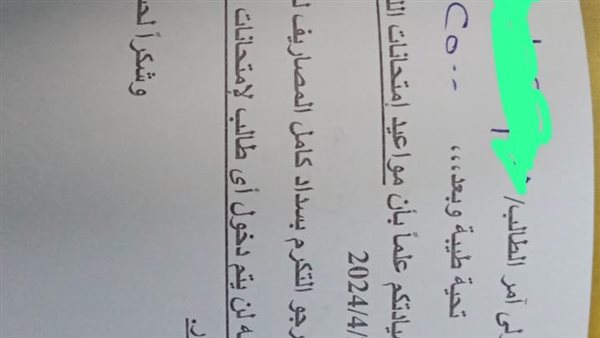 لى أمر الطالب/
تحية طيبة وبعد،،،
يادتكم علماً بأن مواعيد إمتحانات
2024/4/
رجو التكرم بسداد كامل المصاريف
ه لن يتم دخول أى طالب لإمتحانات
وشكراً